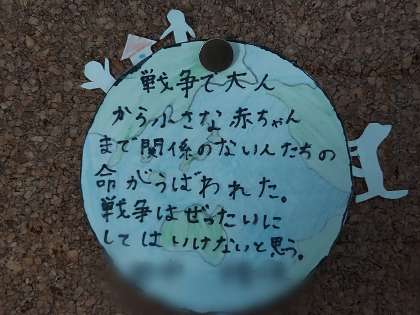 戦争で大人
から小さな赤ちゃん
まで関係のない人たちの
命がうばわれた。
戦争はぜったいに
してはいけないと思う。